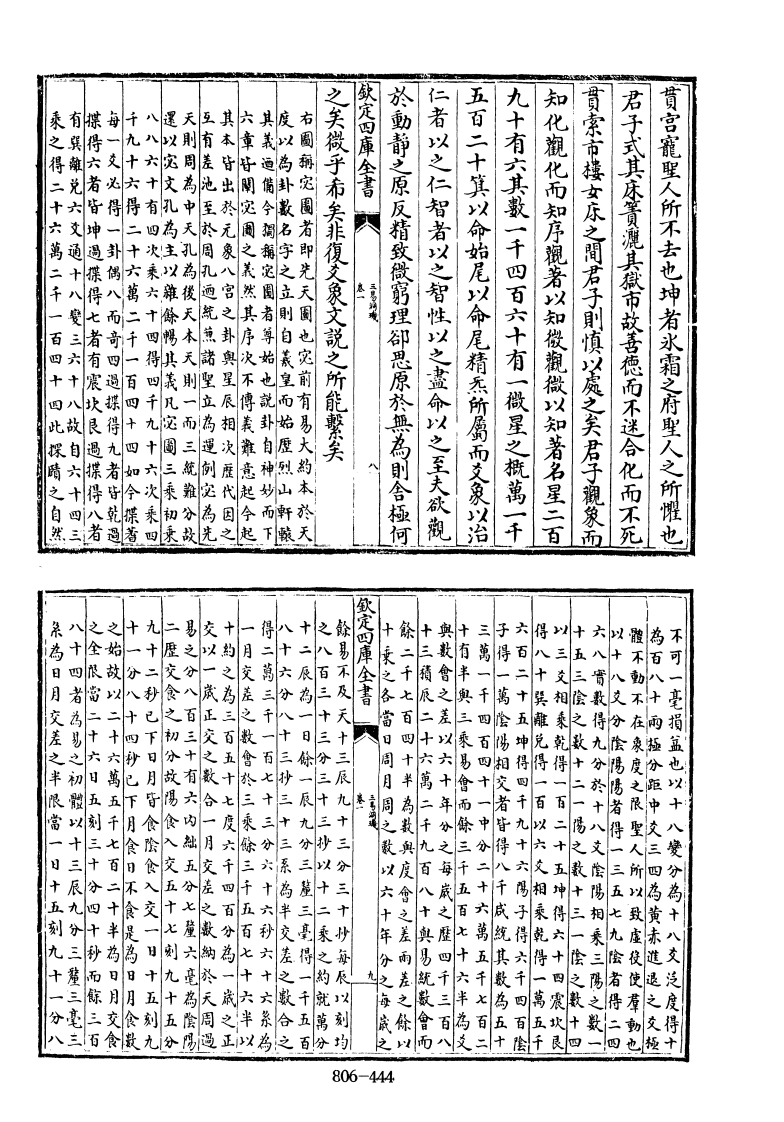 貫宫寵聖人所不去也坤者氷霜之府聖人之所懼也
君子式其床簀灑其獄市故善徳而不迷合化而不死
貫索市樓女床之間君子則慎以處之矣君子觀象而
知化觀化而知序觀著以知微觀微以知著名星二百
九十有六其數一千四百六十有一微星之概萬一千
五百二十算以命始尾以命尾精炁所屬而爻象以治
仁者以之仁智者以之智性以之盡命以之至夫欲觀
於動靜之原反精致微窮理卻思原於無為則舍極何
欽定四庫全書
三易洞璣
卷一
八
之矣微乎希矣非復爻象文説之所能繫矣
右圖稱宓圖者即先天圖也宓前有易大約本於天
度以為卦數名字之立則自羲皇而始歴烈山軒轅
其義迺備今獨稱宓圖者尊始也説卦自神妙而下
六章皆闡宓圖之義然其序次不傳義難意起今起
其本皆出於元象八宫之卦與星辰相次歴代因之
互有差池至於周孔迺統蕉諸聖立為運創宓為先
天則周為中天孔為後天本天則一而三統難分故
還以宓文孔為主以雜餘暢其義凡宓圖三乘初乘
八八六十有四次乘六十四得四千九十六次乘四
千九十六得二十六萬二千一百四十四如今揲蓍
每一爻必得一卦偶八而奇四過揲得九者皆乾過
揲得六者皆坤過揲得七者有震坎艮過揲得八者
有巽離兑六爻通十八變三六十八故自六十四三
乘之得二十六萬二千一百四十四此探賾之自然
不可一毫損益也以十八變分為十八爻泛度得十
為百八十兩極分距中交三四為黄赤進退之交極
體不動不在象度之限聖人所以致虛俊使羣動也
以十八爻分陰陽陽者得一三五七九陰者得二四
六八實數得九分於十八爻陰陽相乘三陽之數一
十五三陰之數十二一陽之數十三一陰之數十四
以三爻相乘乾得一百二十五坤得六十四震坎艮
得八十巽離兑得一百以六爻相乘乾得一萬五千
六百二十五坤得四千九十六陽子得六千四百陰
子得一萬陰陽相交者皆得八千咸統其數為五十
三萬一千四百四十一中分二十六萬五千七百二
十有半與三乘易會而餘三千五百七十六半為爻
與數會之差以六十年分之每歳之歴四千三百八
十三積辰二十六萬二千九百八十與易統數會而
餘二千七百四十半為數與度會之差兩差之餘以
十乘之各當日周月周之數以六十年分之每歳之
欽定四庫全書
三易洞璣
卷一
九
餘易不及天十三辰九十三分三十抄每辰以刻均
之八百三十三分三十三抄以十二乘之約就萬分
十二辰為一日餘一辰九分三釐三毫得一千五百
八十六分八十三抄三十三系為半交差之數合之
得二萬三千一百七十三分六十六秒六十六系為
一月交差之數會於三乘餘三千五百七十六半以
十約之為三百五十七度六千四百分為一歳之正
交以一歳正交之數合一月交差之數納於天周過
易之分八百三十有六内絀五分七釐六毫為陰陽
二歴交食之初分故陽食入交五十七刻九十五分
九十二秒已下日月皆食陰食入交一日十五刻九
十一分八十四秒已下月食日不食是為日月食數
之始故以二十六萬五千七百二十半為日月交食
之全限當二十六日五刻三十分四十秒而餘三百
八十四者為易之初體以十三辰九分三釐三毫三
系為日月交差之半限當一日十五刻九十一分八
806-444